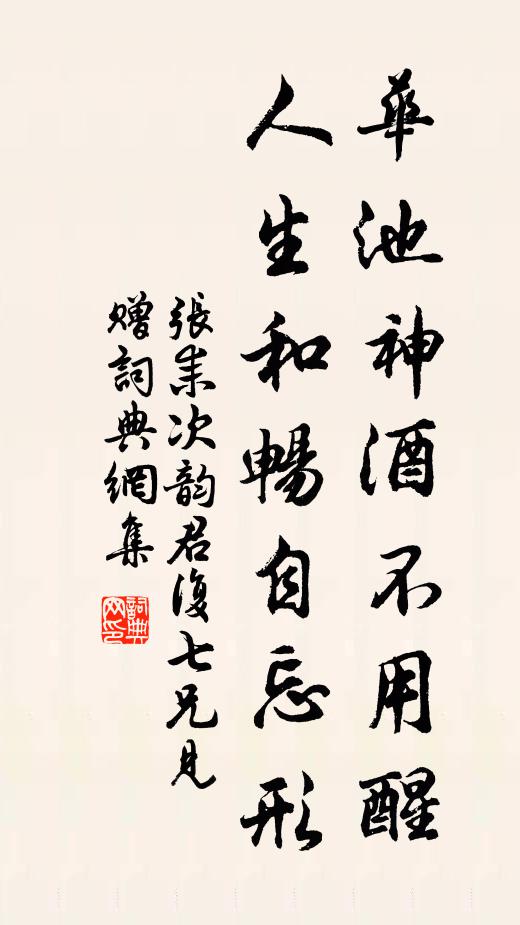 華池神酒不用醒
人生和暢自忘形
張耒次韵君復七兄見
贈詞典網集
詞典
网印